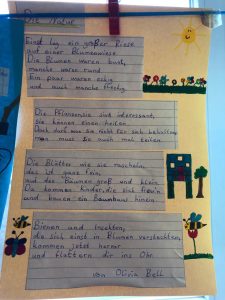 Die Natur
Einst lag ein großer Riese
auf einer Blumenwiese.
Die Blumen waren bunt,
manche waren rund.
Ein paar waren eckig
und auch manche fleckig.
Die Pflanzen sind interessant,
sie können einen heilen.
Doch darf man sie nicht für sich behalten,
man muss sie auch mal teilen.
Die Blätter wie sie rascheln,
das ist ganz fein,
auf den Bäumen groß und klein.
Da kommen Kinder, die sich freu'n
und bauen ein Baumhaus hinein.
Bienen und Insekten,
die sich einst in Blumen versteckten,
kommen jetzt hervor
und flattern dir ins Ohr.
von Olivia Bell